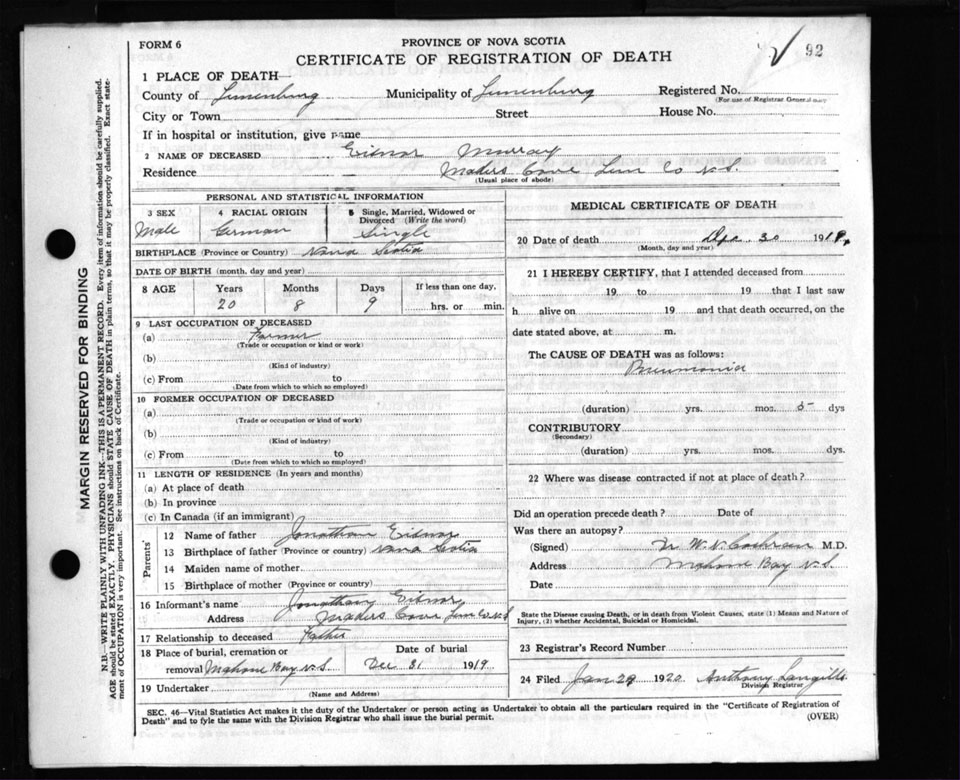 FORM 6
PROVINCE OF NOVA SCOTIA
92
CERTIFICATE OF REGISTRATION OF DEATH
1 PLACE OF DEATH
County of Lunenburg Municipality of Lunenburg Registered No.
(For use of Registrar General only
City or Town Street House No.
If in hospital or institution, give name
2 NAME OF DECEASED Eisnor Murray
Residence Maders Cove Lun Co N.S.
(Usual place of abode)
PERSONAL AND STATISTICAL INFORMATION
3 SEX 4 RACIAL ORIGIN 5 Single, Married, Widowed or
Divorced (Write the word)
Male German Single
BIRTHPLACE (Province or Country) Nova Scotia
DATE OF BIRTH (month, day and year)
8 AGE Years Months Days If less than one day.
20 8 9 hrs. or min.
9 LAST OCCUPATION OF DECEASED
(a) Farmer
(Trade or occupation or kind of work)
(b)
(Kind of industry)
(c) From to
(Date from which to which so employed)
10 FORMER OCCUPATION OF DECEASED
(a)
(Trade or occupation or kind of work)
(b)
(Kind of industry)
(c) From to
(Date from which to which so employed)
11 LENGTH OF RESIDENCE (In years and months)
(a) At place of death
(b) In province
(c) In Canada (if an immigrant)
Parents'
12 Name of father Jonathan Eisnor
13 Birthplace of father (Province or country) Nova Scotia
14 Maiden name of mother
15 Birthplace of mother (Province or country)
16 Informant's name Jonathan Eisnor
Address Maders Cove Lun Co N.S
17 Relationship to deceased Father
18 Place of burial, cremation or Date of burial
removal Mahone Bay N.S Dec 31 1919
19 Undertaker
(Name and Address)
MEDICAL CERTIFICATE OF DEATH
20 Date of death Dec. 30 1919
(Month, day and year)
21 I HEREBY CERTIFY, that I attended deceased from
19 to 19 that I last saw
h alive on 19 and that death occurred, on the
date stated above, at m.
The CAUSE OF DEATH was as follows:
Pneumonia
(duration) yrs. mos. 5 dys
CONTRIBUTORY
(Secondary)
(duration) yrs. mos. dys.
22 Where was disease contracted if not at place of death?
Did an operation precede death? Date of
Was there an autopsy?
(Signed) W. N. Cochran M.D.
Address Mahone Bay N.S.
Date
State the Disease causing Death, or in death from Violent Causes, state (1) Means and Nature of
Injury, (2) whether Accidental, Suicidal or Homicidal.
23 Registrar's Record Number
24 Filed Jan 29 1920 Anthony Langille
Division Registrar
SEC. 46—Vital Statistics Act makes it the duty of the Undertaker or person acting as Undertaker to obtain all the particulars required in the "Certificate of Registration of
Death" and to fyle the same with the Division Registrar who shall issue the burial permit.
(OVER)
MARGIN RESERVED FOR BINDING
N.B.—WRITE PLAINLY WITH UNFADING INK—THIS IS A PERMANENT RECORD. Every item of information should be carefully supplied.
AGE should be stated EXACTLY. PHYSICIANS should STATE CAUSE OF DEATH in plain terms, so that it may be properly classified. Exact state-
ment of OCCUPATION is very important. See instructions on back of Certificate.